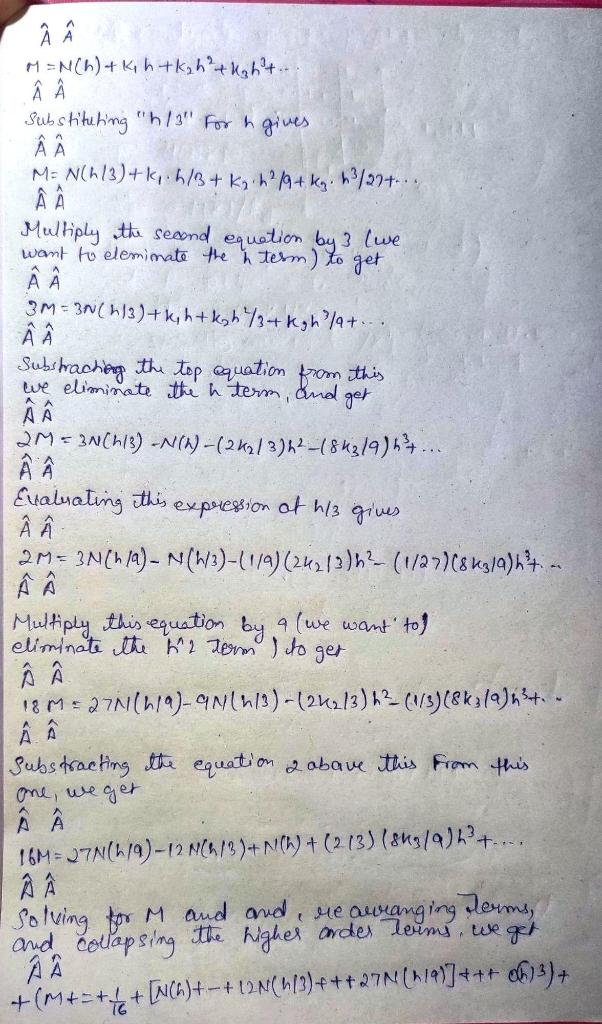 Â Â
M = N(h) + K₁h + K₂h² + K₃h³+...
Â Â
Substituting "h/3" For h gives
Â Â
M = N(h/3) + K₁.h/3 + K₂.h²/9 + K₃.h³/27+...
Â Â
Multiply the second equation by 3 (we
want to eleminate the h term) to get
Â Â
3M = 3N(h/3) + K₁h + K₂h²/3 + K₃h³/9+...
Â Â
Substracting the top equation from this
we eliminate the h term, and get
Â Â
2M = 3N(h/3) - N(h) - (2K₂/3)h² - (8K₃/9)h³+...
Â Â
Evaluating this expression at h/3 gives
Â Â
2M = 3N(h/9) - N(h/3) - (1/9)(2K₂/3)h² - (1/27)(8K₃/9)h³+...
Â Â
Multiply this equation by 9 (we want to)
eliminate the h^2 Term) to get
Â Â
18M = 27N(h/9) - 9N(h/3) - (2K₂/3)h² - (1/3)(8K₃/9)h³+..
Â Â
Substracting the equation 2 abave this From this
one, we get
Â Â
16M = 27N(h/9) - 12N(h/3) + N(h) + (2/3)(8K₃/9)h³+....
Â Â
Solving for M and and, rearranging Terms,
and collapsing the higher order terms, we get
Â Â
+(M+=+1/16+[N(h)+-+12N(h/3)+++27N(h/9)]+++O(h)3)+